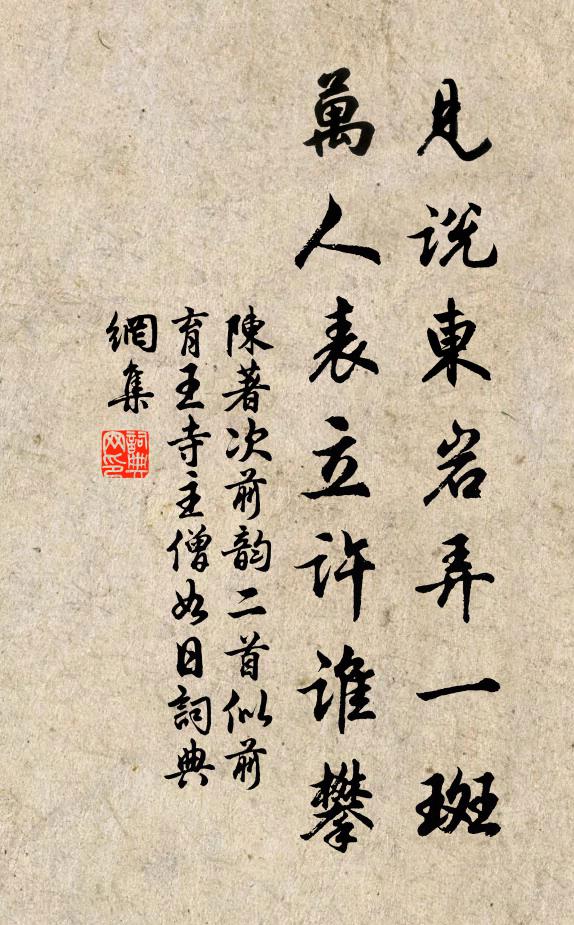 見説東岩弄一斑
萬人表立許誰攀
陳著次前韵二首似前
育王寺主僧如日詞典
網集
詞典网印